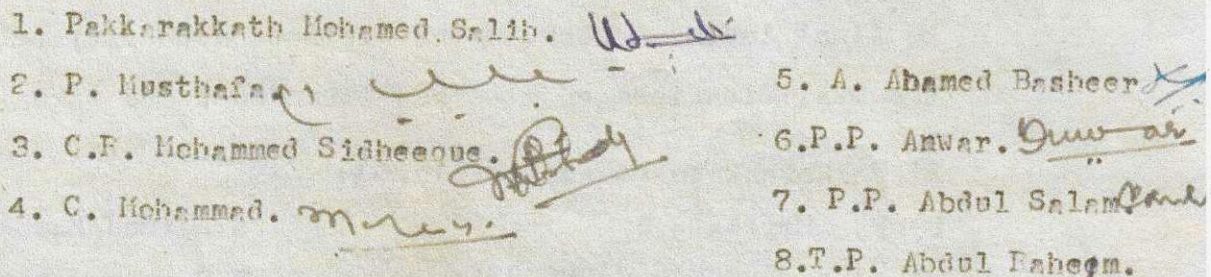 1. Pakkarakkath Mohamed Salih.
2. P. Musthafa.
3. C.P. Mohammed Sidheeque.
4. C. Mohammad.
5. A. Ahamed Basheer
6.P.P. Anwar. Anwar
7. P.P. Abdul Salam
8.T.P. Abdul Raheem.